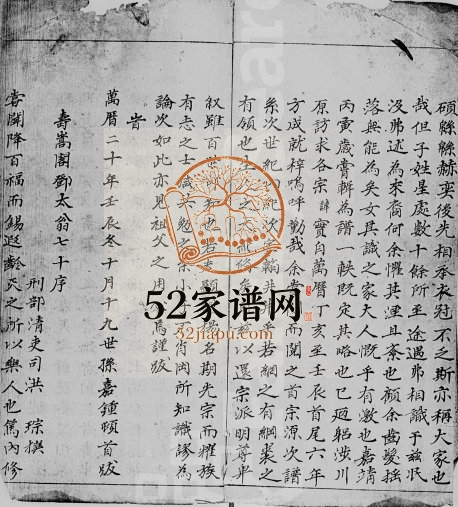 碩縣縣赫奕後先相承衣冠不之斯亦稱大家也
哉但子姓星處數十餘所至途遇弗相識于茲收
沒弗述為來裔何余懼其湮且紊也顧余齒髮搖
落無能為矣女其識之家大人慨乎有激也嘉靖
丙寅歲嘗輯為譜一帙既定其略也已廼躬涉川
原訪求各宗譜實自萬曆丁亥至壬辰首尾六年
方成就梓嗚呼勤哉余嘗而閱之首宗源次譜
系次世紀紀次翰平若網之有綱裘之
有領也以還宗派明尊卑
叙雖百世名期光宗而耀族
有志之士勉之余小肖因所知識謬為
論次如此亦見祖父之用馬謹跋
旹
萬曆二十年壬辰冬十月十九世孫嘉鍾頓首跋
壽嵩閣鄧太翁七十序
刑部清吏司洪琮撰
客聞降百福而錫遐齡天之所以與人也篤內修
52家谱网
52jiapu.com